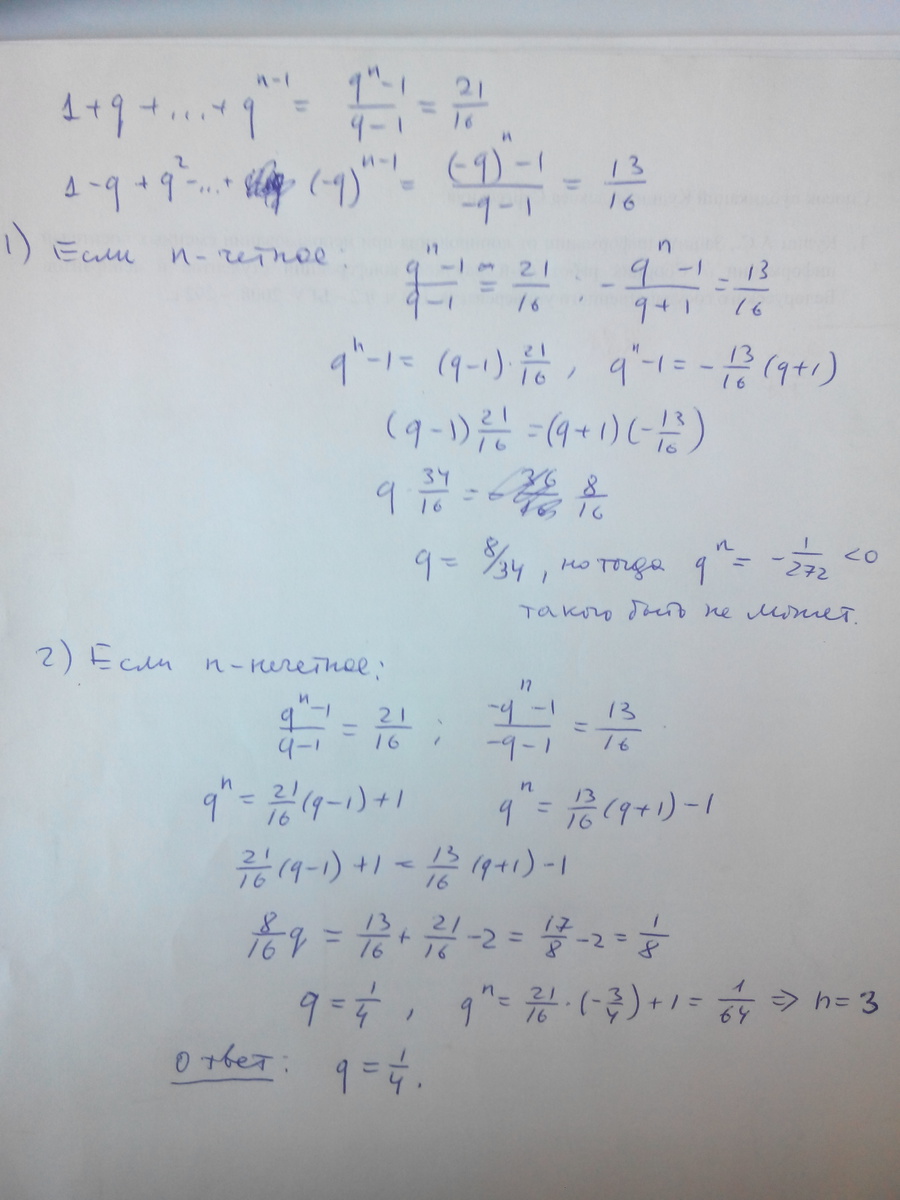 1 + q + ... + q^{n-1} = \frac{q^n - 1}{q - 1} = \frac{21}{16}
1 - q + q^2 - ... + (-q)^{n-1} = \frac{(-q)^n - 1}{-q - 1} = \frac{13}{16}
1) Если n-четное: \frac{q^n - 1}{q - 1} = \frac{21}{16}; -\frac{q^n - 1}{q + 1} = \frac{13}{16}
q^n - 1 = (q - 1) \cdot \frac{21}{16}, q^n - 1 = -\frac{13}{16}(q + 1)
(q - 1)\frac{21}{16} = (q + 1)(-\frac{13}{16})
q \cdot \frac{34}{16} = \frac{8}{16}
q = 8/34, но тогда q^n = -\frac{1}{272} < 0
такого быть не может.
2) Если n-нечетное:
\frac{q^n - 1}{q - 1} = \frac{21}{16}; \frac{-q^n - 1}{-q - 1} = \frac{13}{16}
q^n = \frac{21}{16}(q - 1) + 1 q^n = \frac{13}{16}(q + 1) - 1
\frac{21}{16}(q - 1) + 1 = \frac{13}{16}(q + 1) - 1
\frac{8}{16}q = \frac{13}{16} + \frac{21}{16} - 2 = \frac{17}{8} - 2 = \frac{1}{8}
q = \frac{1}{4}, q^n = \frac{21}{16} \cdot (-\frac{3}{4}) + 1 = \frac{1}{64} ⇒ n = 3
Ответ: q = \frac{1}{4}.